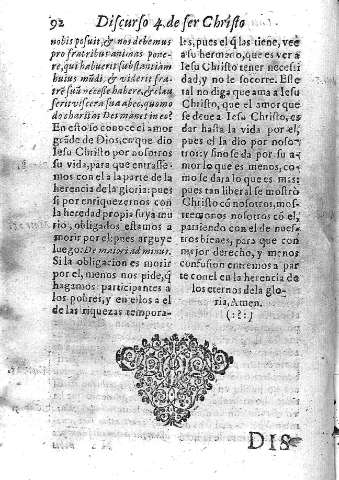 92 Discurso 4. de ser Christo
nobis posuit, & nos debemus
pro fratribus animas pone-
re, qui habuerit substantiam
huius mūdi, & viderit fra-
trē suū necesse habere, & clau
serit viscera sua ab eo, quomo
do charitas Dei manet in eo?
En esto se conoce el amor
grãde de Dios, en que dio
Iesu Christo por nosotros
su vida, para que entrasse-
mos con el a la parte de la
herencia de la gloria: pues
si por enriquezernos con
la heredad propia suya mu
rio, obligados estamos a
morir por el: pues arguye
luego: De maiori ad minus.
Si la obligacion es morir
por el, menos nos pide, q̃
hagamos participantes a
los pobres, y en ellos a el
de las riquezas tempora-
les, pues el q̃ las tiene, vee
a su hermano, que es ver a
Iesu Christo tener necesi
dad, y no le socorre. Este
tal no diga que ama a Iesu
Christo, que el amor que
se deue a Iesu Christo, es
dar hasta la vida por el,
pues el la dio por noso-
tros: y sino se da por su a-
mor lo que es menos, co-
mo se dara lo que es mas;
pues tan liberal se mostrò
Christo cō nosotros, mos-
tremonos nosotros cō el,
partiendo con el de nues-
tros bienes, para que con
mejor derecho, y menos
confusion entremos a par
te con el en la herencia de
los eternos de la glo-
ria, Amen.
(:?:)
DIS-